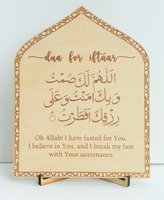 dua for iftaar
اللَّهُمَّ لَكَ صُمْتُ
وَبِكَ آمَنْتُ وَعَلَى
رِزْقِكَ أَفْطَرْتُ
Oh Allah! I have fasted for You,
I believe in You, and I break my fast
with Your sustenance.